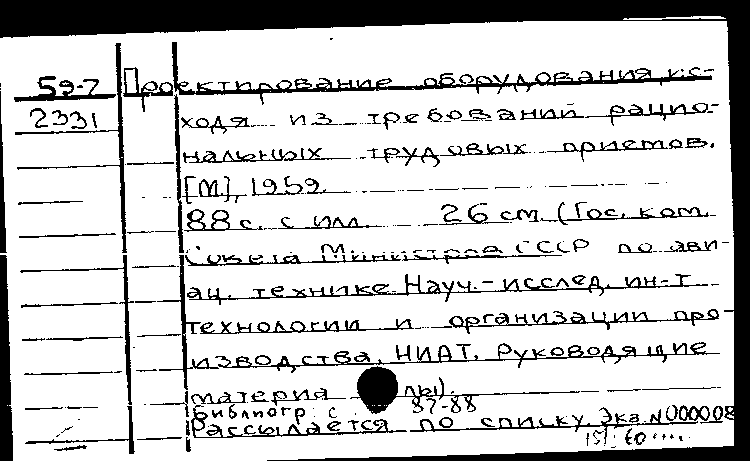 59-7 Проектирование оборудования, ис-
2331 ходя из требований рацио-
нальных трудовых приемов.
[М], 1959.
88 с. с илл. 26 см. (Гос. ком.
Совета Министров СССР по ави-
ац. технике Науч.-исслед. ин-т
технологии и организации про-
изводства. НИАТ. Руководящие
материалы).
Библиогр: с. 87-88
Рассылается по списку. Экз. N000008